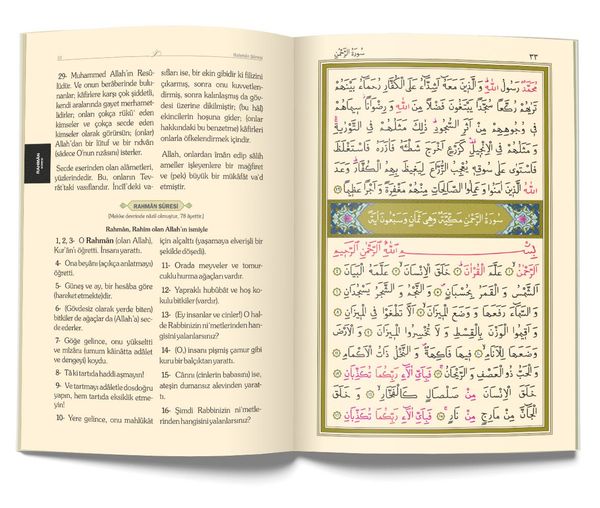 Rahmân Sûresi
RAHMÂN
29- Muhammed Allah'ın Resû-
lüdür. Ve onun berâberinde bulu-
nanlar; kâfirlere karşı çok şiddetli,
kendi aralarında gayet merhamet-
lidirler; onları çokça rükû' eden
kimseler ve çokça secde eden
kimseler olarak görürsün; (onlar)
Allah'dan bir lütuf ve bir rıdvân
(sâdece O'nun rızâsını) isterler.
Secde eserinden olan alâmetleri,
yüzlerindedir. Bu, onların Tev-
rât'taki vasıflarıdır. İncîl'deki va-
sıfları ise, bir ekin gibidir ki filizini
çıkarmış, sonra onu kuvvetlen-
dirmiş, sonra kalınlaşmış da göv-
desi üzerine dikilmiştir; (bu hâl)
ekincilerin hoşuna gider; (onlar
hakkındaki bu benzetme) kâfirleri
onlarla öfkelendirmek içindir.
Allah, onlardan îmân edip sâlih
ameller işleyenlere bir mağfiret
ve (pek) büyük bir mükâfât va'd
etmiştir.
RAHMÂN SÛRESİ
(Mekke devrinde nâzil olmuştur, 78 âyettir.)
Rahmân, Rahîm olan Allah'ın ismiyle
1, 2, 3- O Rahmân (olan Allah),
Kur'ân'ı öğretti. İnsanı yarattı.
4- Ona beyânı (açıkça anlatmayı)
öğretti.
5- Güneş ve ay, bir hesâba göre
(hareket etmekte)dir.
6- (Gövdesiz olarak yerde biten)
bitkiler de ağaçlar da (Allah'a) sec-
de ederler.
7- Göğe gelince, onu yükseltti
ve mîzânı (umum kâinâtta adâlet
ve dengeyi) koydu.
8- Tâ ki tartıda haddi aşmayın!
9- Ve tartmayı adâletle dosdoğru
yapın, hem tartıda eksiklik etme-
yin!
10- Yere gelince, onu mahlûkât
için alçalttı (yaşamaya elverişli bir
şekilde döşedi).
11- Orada meyveler ve tomur-
cuklu hurma ağaçları vardır.
12- Yapraklı hububât ve hoş ko-
kulu bitkiler (vardır).
13- (Ey insanlar ve cinler!) O hal-
de Rabbinizin ni'metlerinden han-
gisini yalanlarsınız?
14- (O,) insanı pişmiş çamur gibi
kuru bir balçıktan yarattı.
15- Cânnı (cinlerin babasını) ise,
ateşin dumansız alevinden yarat-
tı.
16- Şimdi Rabbinizin ni'metle-
rinden hangisini yalanlarsınız?
سُورَةُ الرَّحْمٰنِ
٣٣
مُحَمَّدٌ رَسُولُ اللّٰهِ وَالَّذِينَ مَعَهُ أَشِدَّاءُ عَلَى الْكُفَّارِ رُحَمَاءُ بَيْنَهُمْ
تَرَاهُمْ رُكَّعًا سُجَّدًا يَبْتَغُونَ فَضْلًا مِنَ اللّٰهِ وَرِضْوَانًا سِيمَاهُمْ
فِي وُجُوهِهِمْ مِنْ أَثَرِ السُّجُودِ ذٰلِكَ مَثَلُهُمْ فِي التَّوْرٰيةِ
وَمَثَلُهُمْ فِي الْإِنْجِيلِ كَزَرْعٍ أَخْرَجَ شَطْأَهُ فَآزَرَهُ فَاسْتَغْلَظَ
فَاسْتَوٰى عَلٰى سُوقِهِ يُعْجِبُ الزُّرَّاعَ لِيَغِيظَ بِهِمُ الْكُفَّارَ وَعَدَ
اللّٰهُ الَّذِينَ آمَنُوا وَعَمِلُوا الصَّالِحَاتِ مِنْهُمْ مَغْفِرَةً وَأَجْرًا عَظِيمًا ﴿٢٩﴾
سُورَةُ الرَّحْمٰنِ مَكِّيَّةٌ وَهِيَ ثَمَانٍ وَسَبْعُونَ آيَةً
بِسْمِ اللّٰهِ الرَّحْمٰنِ الرَّحِيمِ
اَلرَّحْمٰنُ ﴿١﴾ عَلَّمَ الْقُرْآنَ ﴿٢﴾ خَلَقَ الْإِنْسَانَ ﴿٣﴾ عَلَّمَهُ الْبَيَانَ ﴿٤﴾
اَلشَّمْسُ وَالْقَمَرُ بِحُسْبَانٍ ﴿٥﴾ وَالنَّجْمُ وَالشَّجَرُ يَسْجُدَانِ ﴿٦﴾
وَالسَّمَاءَ رَفَعَهَا وَوَضَعَ الْمِيزَانَ ﴿٧﴾ أَلَّا تَطْغَوْا فِي الْمِيزَانِ ﴿٨﴾
وَأَقِيمُوا الْوَزْنَ بِالْقِسْطِ وَلَا تُخْسِرُوا الْمِيزَانَ ﴿٩﴾ وَالْأَرْضَ
وَضَعَهَا لِلْأَنَامِ ﴿١٠﴾ فِيهَا فَاكِهَةٌ وَالنَّخْلُ ذَاتُ الْأَكْمَامِ ﴿١١﴾
وَالْحَبُّ ذُو الْعَصْفِ وَالرَّيْحَانُ ﴿١٢﴾ فَبِأَيِّ آلَاءِ رَبِّكُمَا تُكَذِّبَانِ ﴿١٣﴾
خَلَقَ الْإِنْسَانَ مِنْ صَلْصَالٍ كَالْفَخَّارِ ﴿١٤﴾ وَخَلَقَ
الْجَانَّ مِنْ مَارِجٍ مِنْ نَارٍ ﴿١٥﴾ فَبِأَيِّ آلَاءِ رَبِّكُمَا تُكَذِّبَانِ ﴿١٦﴾